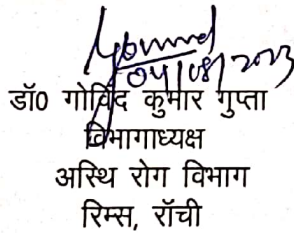 04/08/2023
डॉ0 गोविंद कुमार गुप्ता
विभागाध्यक्ष
अस्थि रोग विभाग
रिम्स, राँची